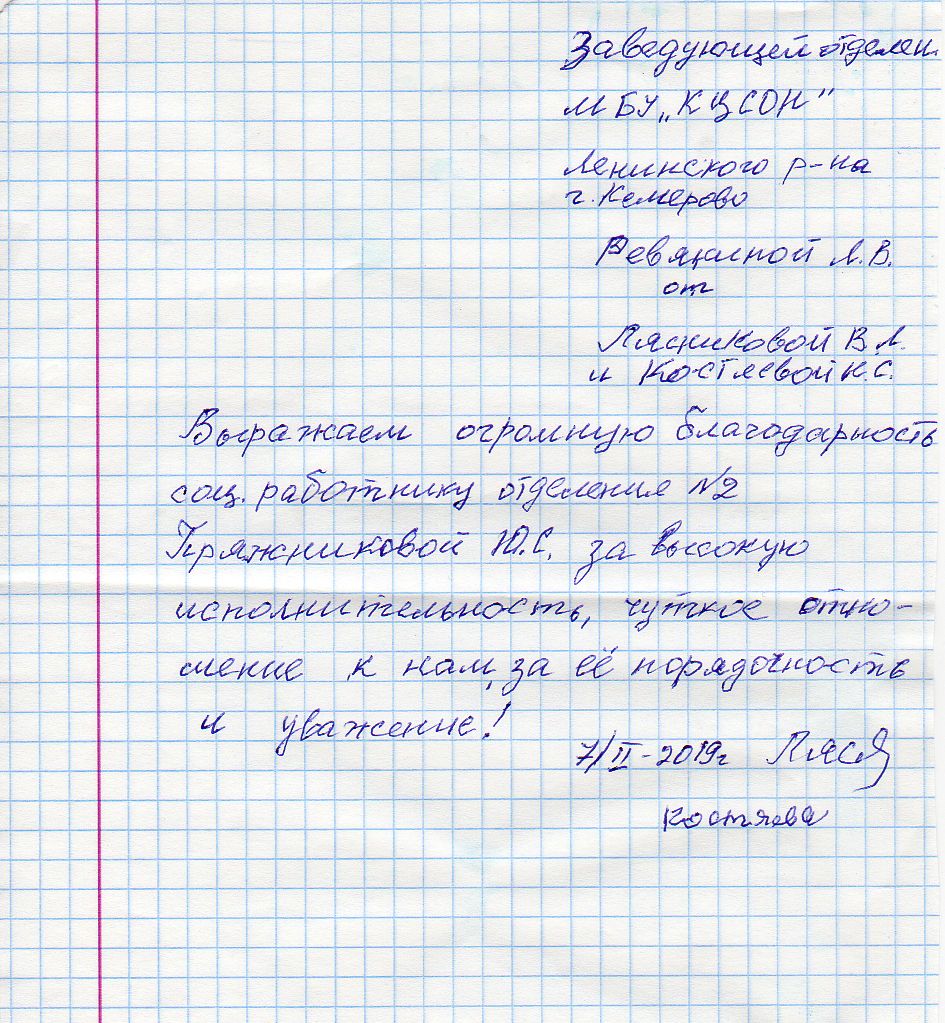 Заведующей отделен.
МБУ „КЦСОН"
Ленинского р-на
г. Кемерово
Ревякиной Л.В.
от
Лясниковой В.Л.
и Костяевой Н.С.
Выражаем огромную благодарность
соц. работнику отделения №2
Пряжниковой Ю.С. за высокую
исполнительность, чуткое отно-
шение к нам, за её порядочность
и уважение!
7/II-2019г
Костяева